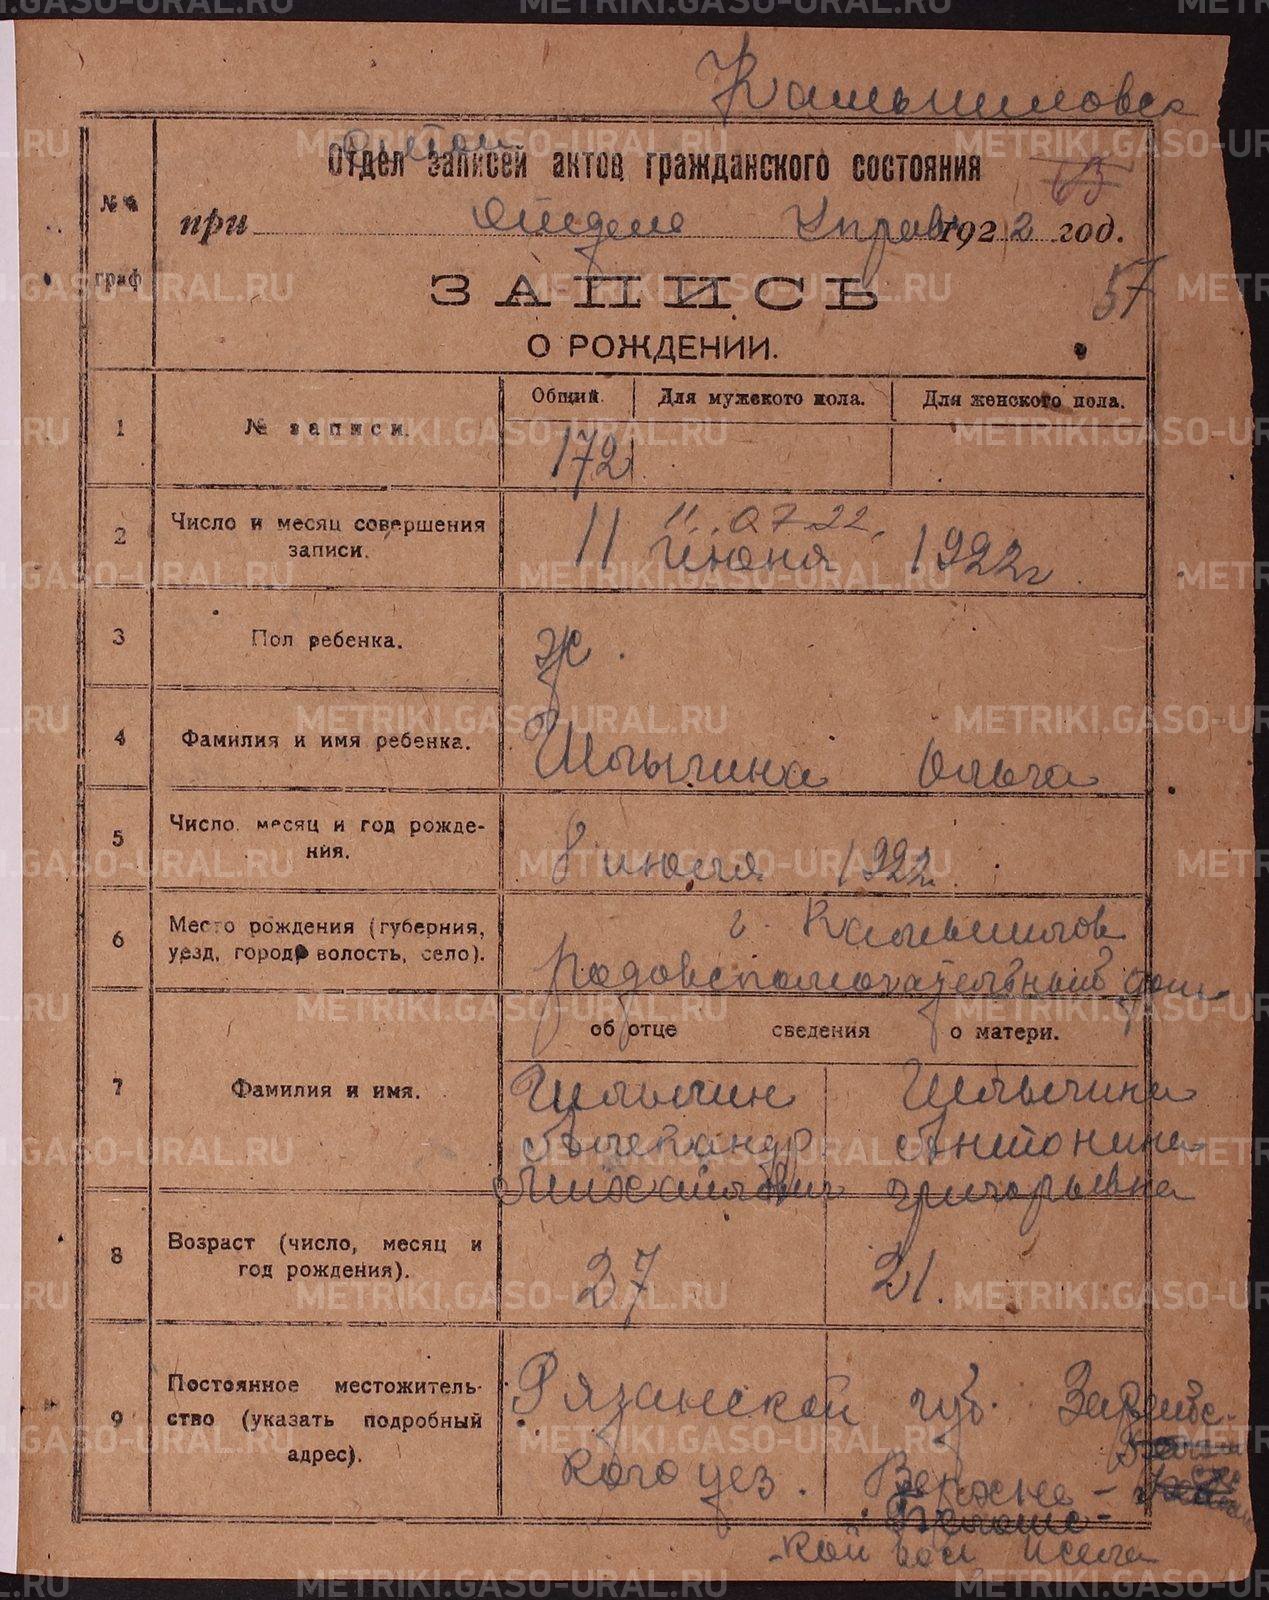 Камышловск
Отдел записей актов гражданского состояния
63
при Отделе Управ 1922 год.
№№ граф
57
ЗАПИСЬ
О РОЖДЕНИИ.
Общий. Для мужского пола. Для женского пола.
1 № записи. 172
2 Число и месяц совершения записи. 11 Июня 1922г
11.07.22.
3 Пол ребенка. ж.
4 Фамилия и имя ребенка. Шлычина Ольга
5 Число, месяц и год рождения. 8 июля 1922
6 Место рождения (губерния, уезд, город, волость, село). г. Камышлов
Родовспомогательный дом
об отце сведения о матери.
7 Фамилия и имя. Шлычин Шлычина
Александр Антонина
Михайлович Григорьевна
8 Возраст (число, месяц и год рождения). 27 21.
9 Постоянное местожительство (указать подробный адрес). Рязанской губ. Зарайс-
кого уез. Верхне-
Белоомс-
кой вол
METRIKI.GASO-URAL.RU